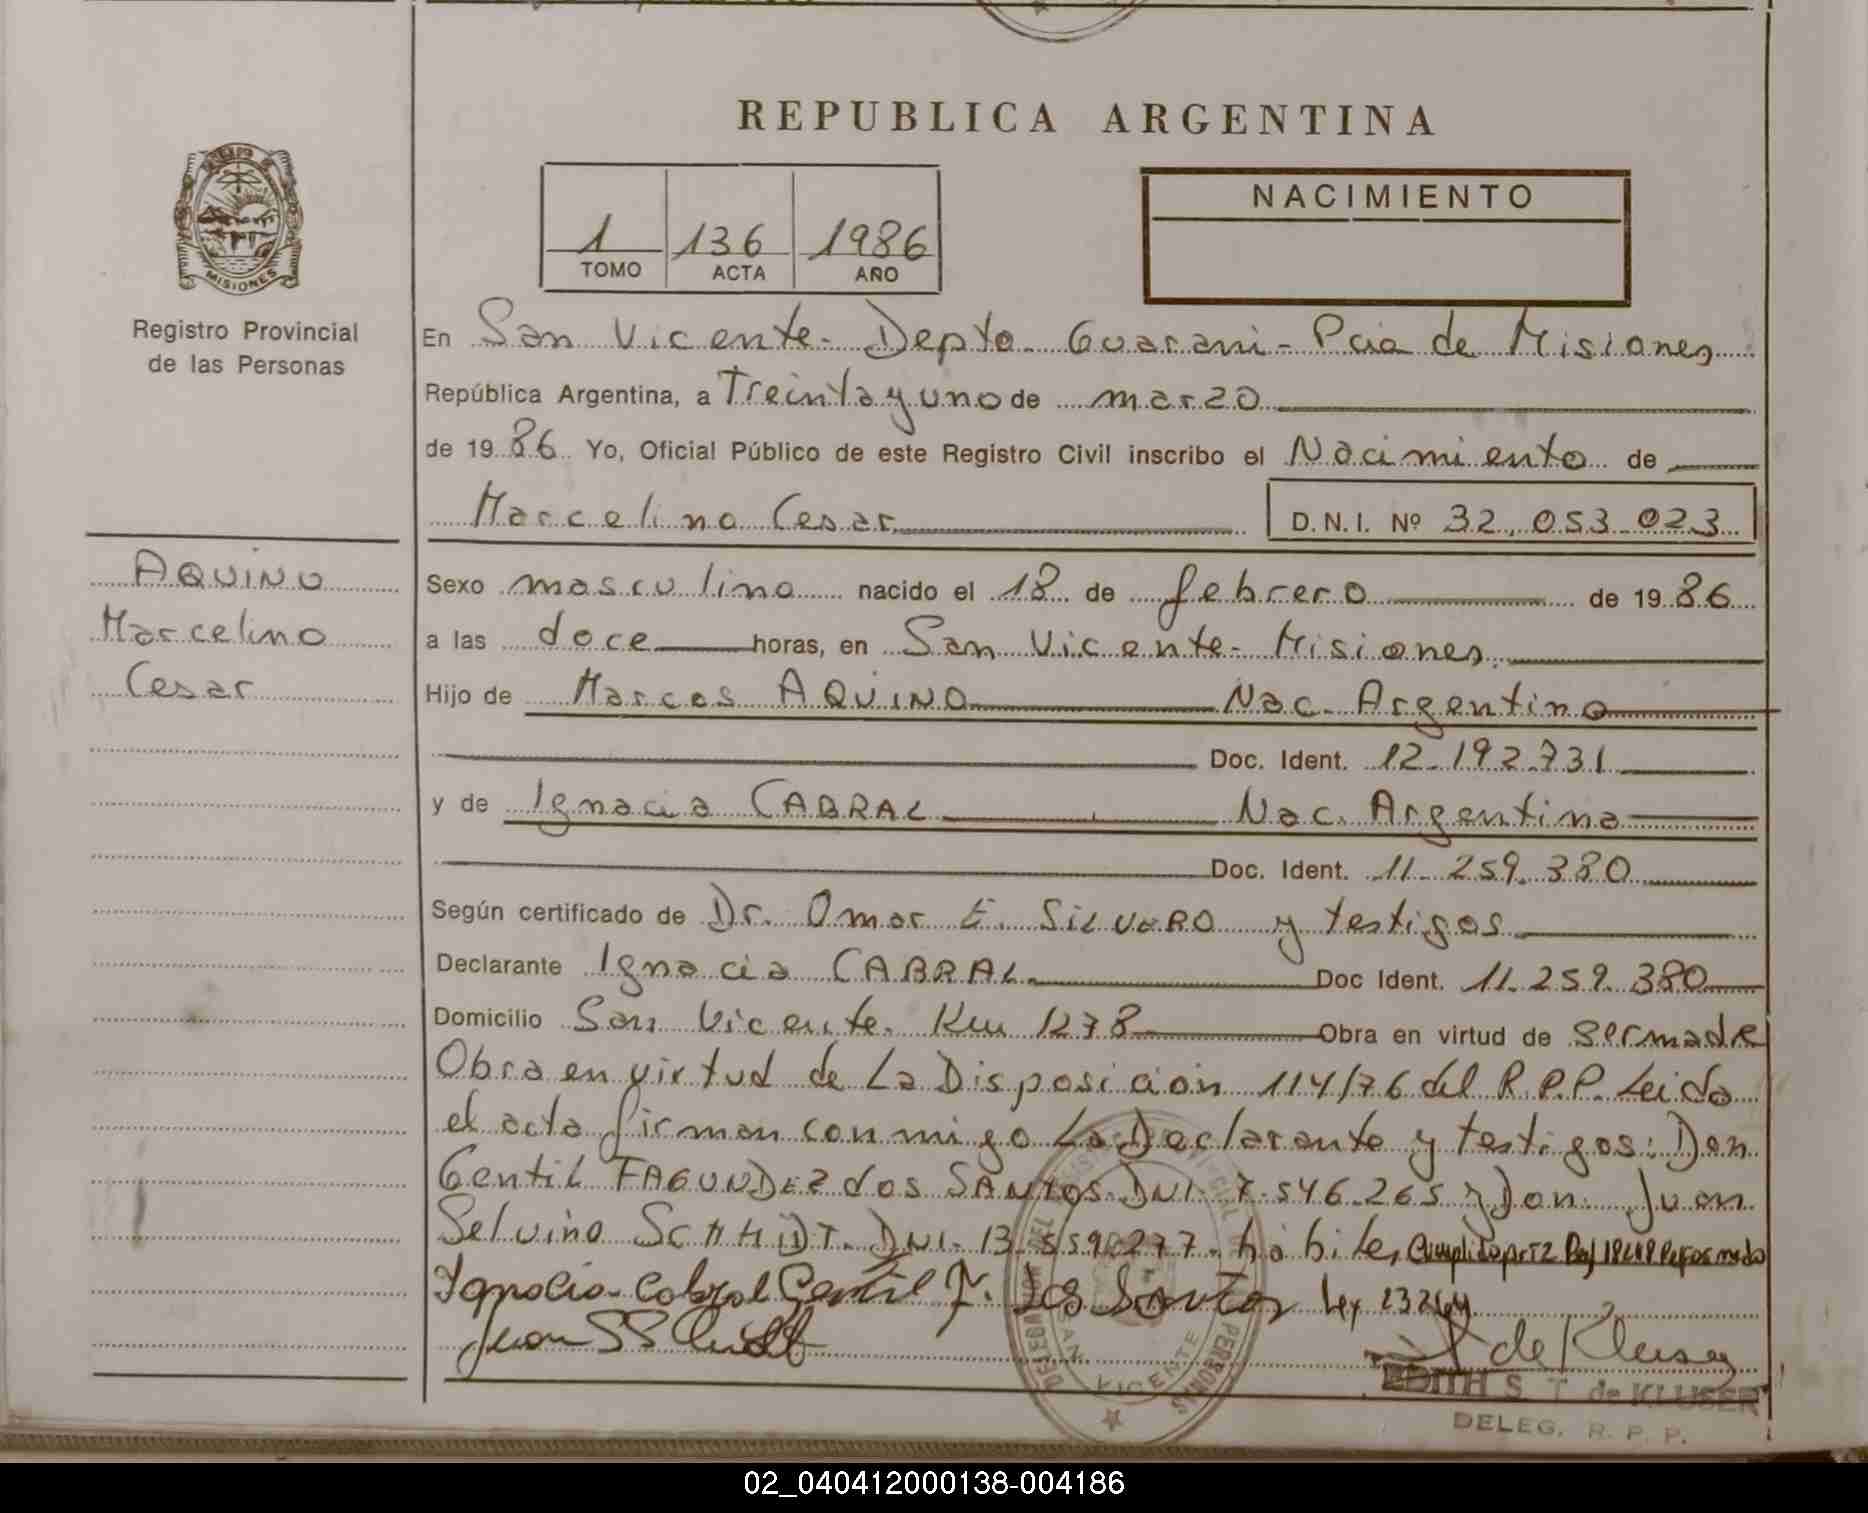 REPUBLICA ARGENTINA
NACIMIENTO
1 136 1986
TOMO ACTA AÑO
MISIONES
Registro Provincial
de las Personas
En San Vicente - Depto Guarani - Pcia de Misiones
República Argentina, a Treinta y uno de marzo
de 1986 Yo, Oficial Público de este Registro Civil inscribo el Nacimiento de
Marcelino Cesar D.N.I. Nº 32.053.023
AQUINO
Marcelino
Cesar
Sexo masculino nacido el 18 de febrero de 1986
a las doce horas, en San Vicente - Misiones
Hijo de Marcos AQUINO Nac. Argentino
Doc. Ident. 12.192.731
y de Ignacia CABRAL Nac. Argentina
Doc. Ident. 11.259.380
Según certificado de Dr. Omar E. SILVERO y testigos
Declarante Ignacia CABRAL Doc Ident. 11.259.380
Domicilio San Vicente. Km 1278 Obra en virtud de ser madre
Obra en virtud de La Disposición 114/76 del R.P.P. Leida
el acta firman conmigo La Declarante y testigos: Don
Gentil FAGUNDEZ dos SANTOS DNI. 7.546.265 y Don Juan
Selvino SCHMIDT. DNI. 13.559.277. hábiles Cumplido art 2 18248 Reformado
Ignacia Cabral Gentil F. dos Santos Ley 23264
Juan S Schmidt
de Kluser
EDITH S. T. de KLUSER
DELEG. R. P. P.
SAN VICENTE
02_040412000138-004186